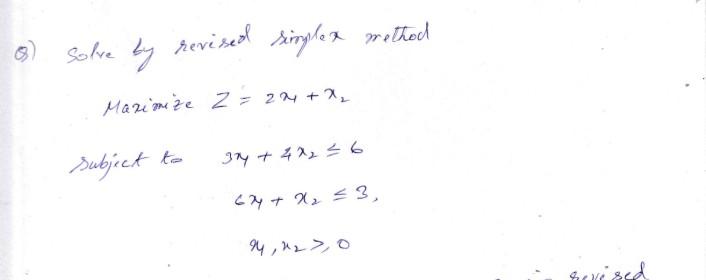 8) Solve by revised simplex method
Maximize Z = 2x₁ + x₂
Subject to 3x₁ + 4x₂ ≤ 6
6x₁ + x₂ ≤ 3,
x₁, x₂ ≥ 0
revised